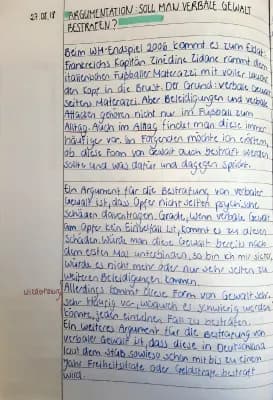 27.01.18
ARGUMENTATION: SOLL MAN VERBALE GEWALT
BESTRAFEN?
Beim WM-Endspiel 2006 kommt es zum Eklat.
Frankreichs Kapitän Zinédine Zidane rammt dem
italienischen Fußballer Materazzi mit voller Wucht
den Kopf in die Brust. Der Grund: verbale Gewalt
seitens Materazzi. Aber Beleidigungen und verbale
Attacken gehören nicht nur im Fußball zum
Alltag. Auch im Alltag findet man diese immer
häufiger vor. Im Folgenden möchte ich erörtern,
ob diese Form von Gewalt auch bestraft werden
sollte und was dafür und dagegen spricht.
Ein Argument für die Bestrafung von verbaler
Gewalt ist, dass Opfer nicht selten psychische
Schäden davontragen. Grade, wenn verbale Gewalt
am Opfer kein Einzelfall ist, kommt es zu diesen
Schäden. Würde man diese Gewalt bereits nach
dem ersten Mal unterbinden, so bin ich mir sicher,
würde es nicht mehr oder nur sehr selten zu
weiteren Beleidigungen kommen.
Allerdings kommt diese Form von Gewalt sehr,
sehr häufig vor, wodurch es schwierig werden
könnte, jeden einzelnen Fall zu bestrafen.
Ein weiteres Argument für die Bestrafung von
verbaler Gewalt ist, dass diese in Deutschland
laut dem StGB sowieso schon mit bis zu einem
Jahr Freiheitsstrafe oder Geldstrafe bestraft
wird.